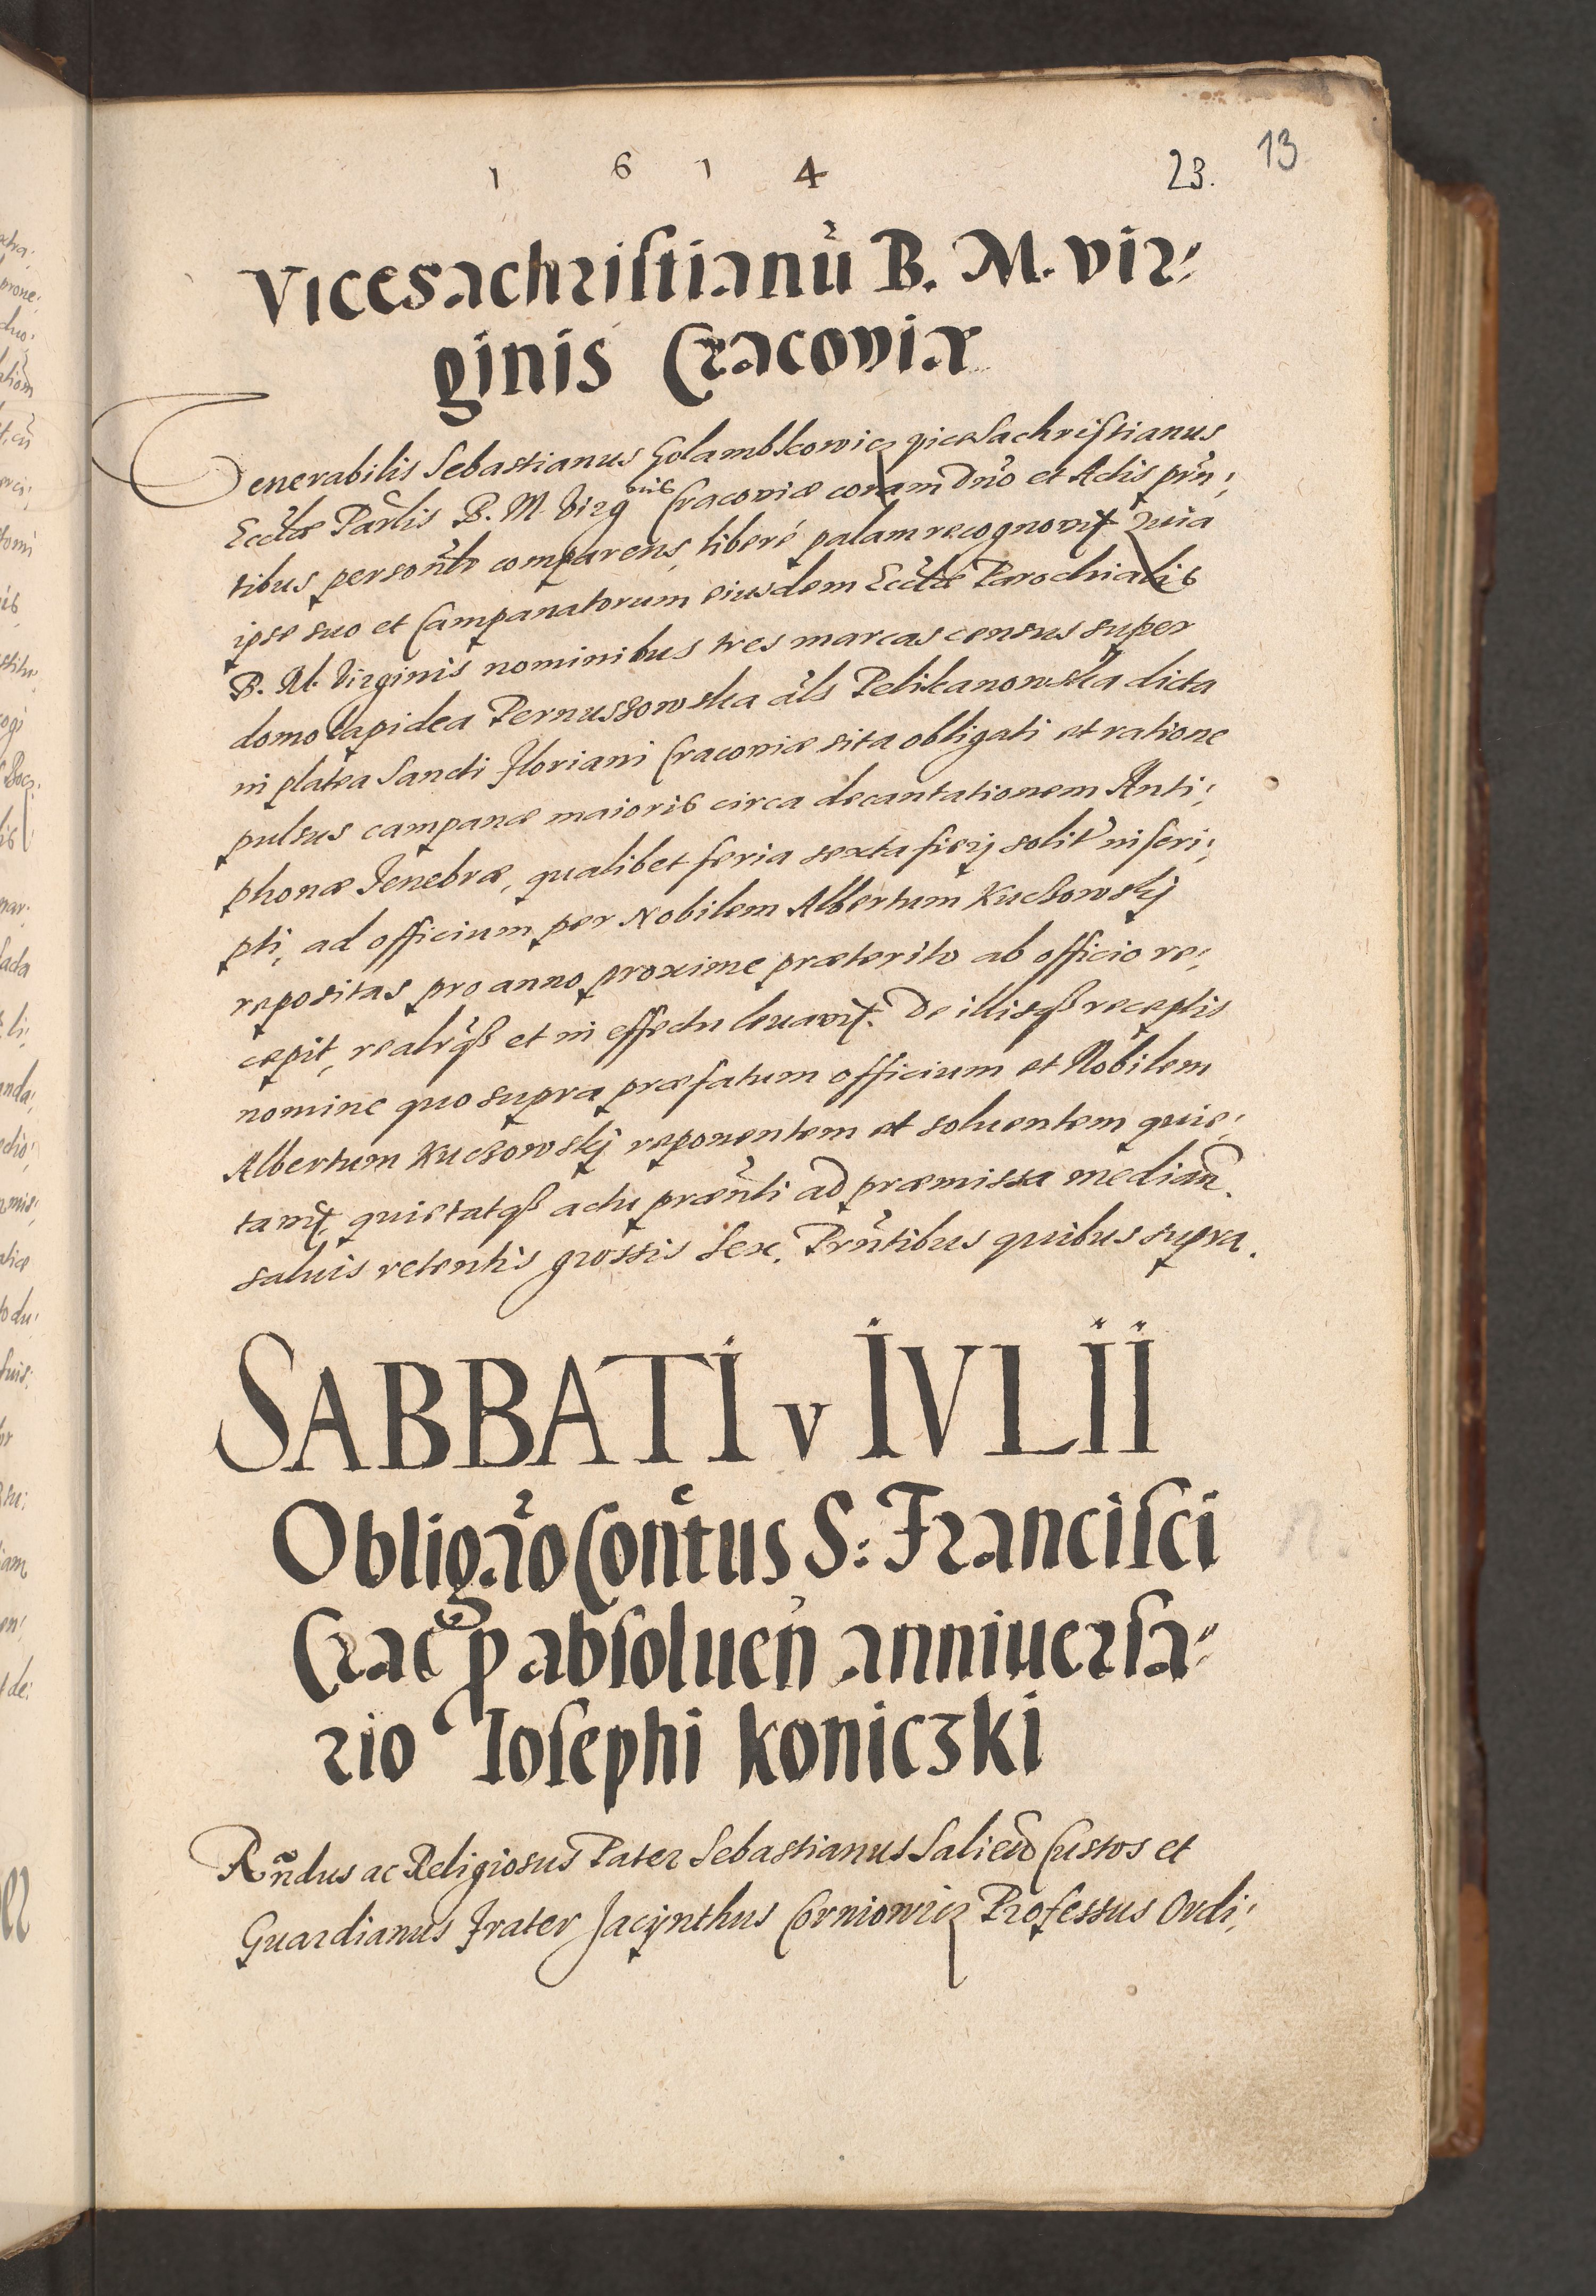 1 6 1 4 23. 13
Vicesachristianū B. M. Vir-
ginis Cracoviæ
Venerabilis Sebastianus Golambkowicz viceSachristianus
Ecclæ Parlis B. M. Virginis Cracoviæ coram Dno et Actis prn-
tibus personlr comparens, liberé palam recognovit Quia
ipse suo et Campanatorum eiusdem Ecclæ Parochialis
B. M. Virginis nominibus tres marcas census super
domo lapidea Pernuszowska als Pelikanowska dicta
in platea Sancti Floriani Cracoviæ sita obligati et ratione
pulsus campanæ maioris circa decantationem Anti-
phonæ Tenebræ, qualibet feria sexta fierj solit inscri-
pti, ad officium per Nobilem Albertum Kuczowskj
repositas pro anno proxime præterito ab officio re-
cepit, realrqß et in effectu levavit. De illisqß receptis
nomine quo supra præfatum officium et Nobilem
Albertum Kuczowskj reponentem et soluentem quie-
tavit, quietatqß actu prænti ad præmissa median.
saluis retentis grossis Sex. Prntibus quibus supra.
SABBATI V IVLII
Obligaõ Contus S: Francisci
Crac p absoluen anniuersa-
rio Iosephi Koniczki
Rndus ac Religiosus Pater Sebastianus Custos et
Guardianus Frater Jacijnthus Corniowicz Professus Ordi-